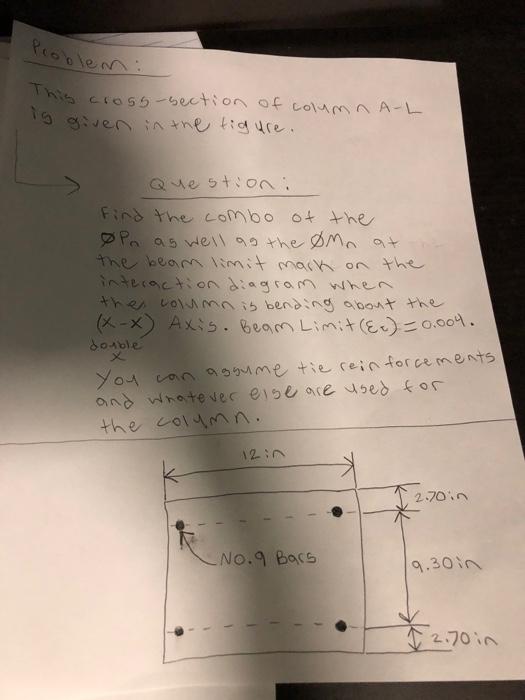 Problem:
This cross-section of column A-L
is given in the figure.
Question:
Find the combo of the
ØPn as well as the ØMn at
the beam limit mark on the
interaction diagram when
the column is bending about the
(x-x) Axis. Beam Limit (Ɛt) = 0.004.
double
x
You can assume tie reinforcements
and whatever else are used for
the column.
12in
2.70in
No.9 Bars
9.30in
2.70in